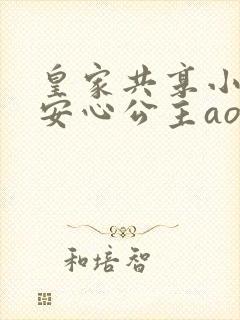 皇家共享小
安心公主ao
和培智